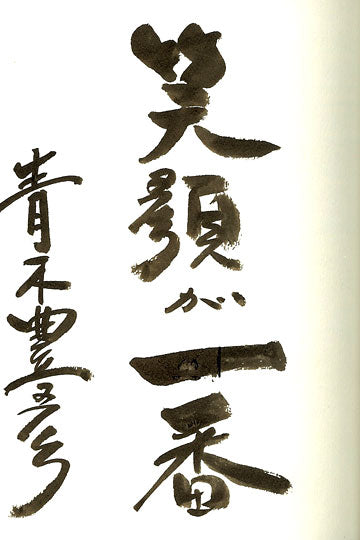 笑顔が一番
青木豊彦